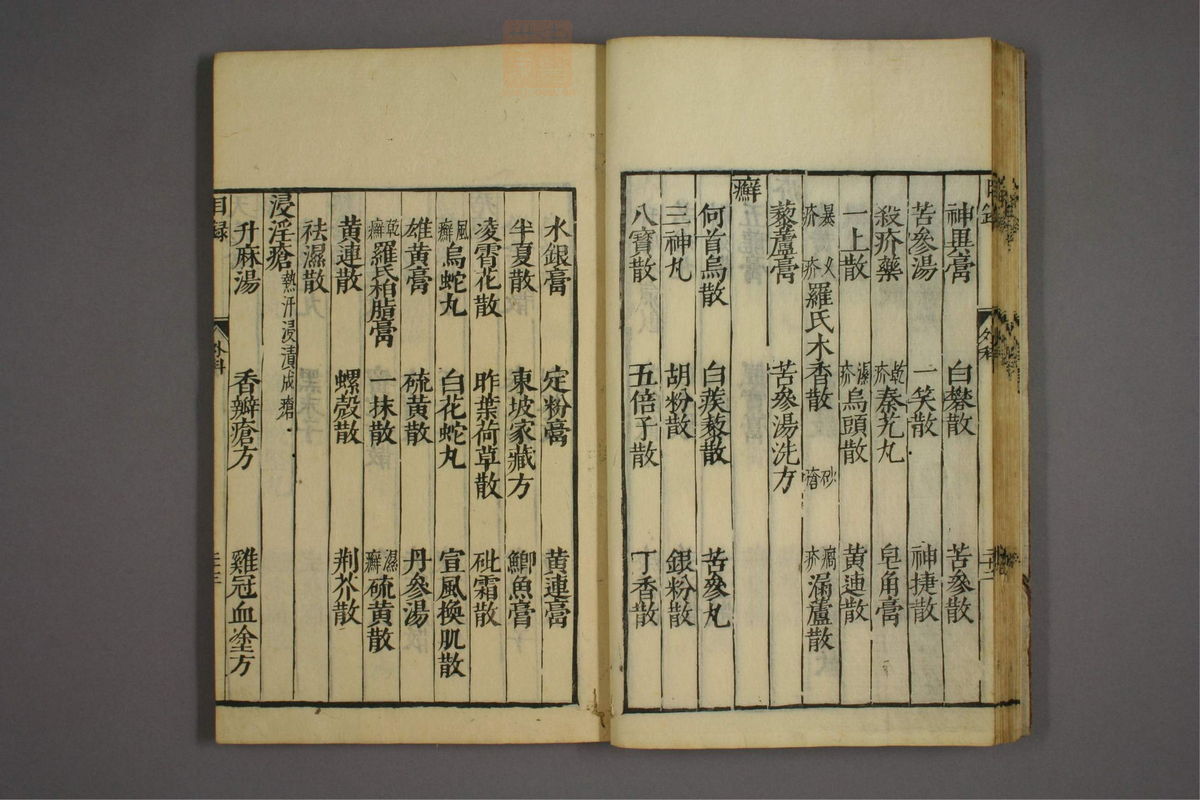 目錄 外科 三十二
神異膏 白礬散 苦參散
苦參湯 一笑散 神捷散
殺疥藥 乾疥秦艽丸 皂角膏
一上散 濕疥烏頭散 黃連散
羅氏木香散 砂瘡 漏蘆散
藜蘆膏 苦參湯洗方
癬
何首烏散 白蒺藜散 苦參丸
三神丸 胡粉散 銀粉散
八寶散 五倍子散 丁香散
水銀膏 定粉膏 黃連膏
半夏散 東坡家藏方 鯽魚膏
凌霄花散 昨葉荷草散 砒霜散
風癬烏蛇丸 白花蛇丸 宣風換肌散
雄黃膏 硫黃散 丹參湯
乾癬羅氏柏脂膏 一抹散 濕癬硫黃散
黃連散 螺殼散 荆芥散
祛濕散
浸淫瘡熱汗浸漬成瘡
升麻湯 香瓣瘡方 雞冠血塗方
目錄 外科 三十三